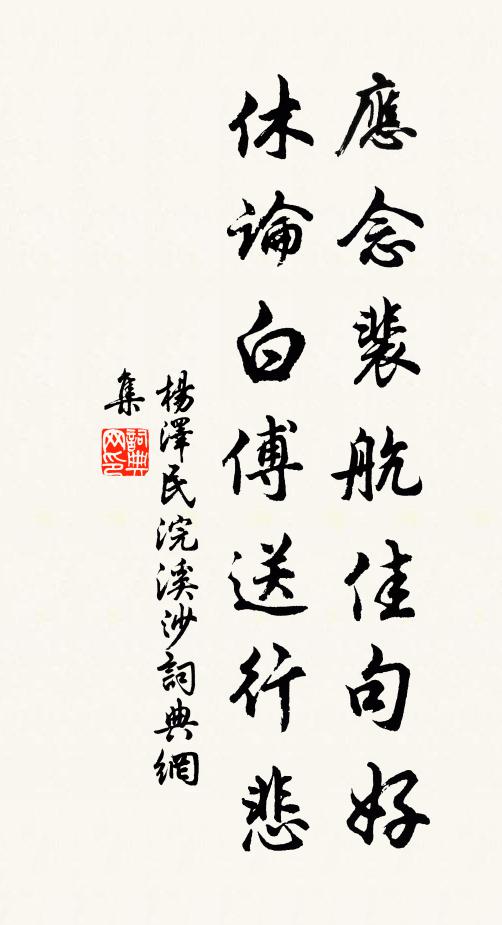 應念裴航佳句好
休論白傅送行悲
楊澤民浣溪沙詞典網
集
詞典網印